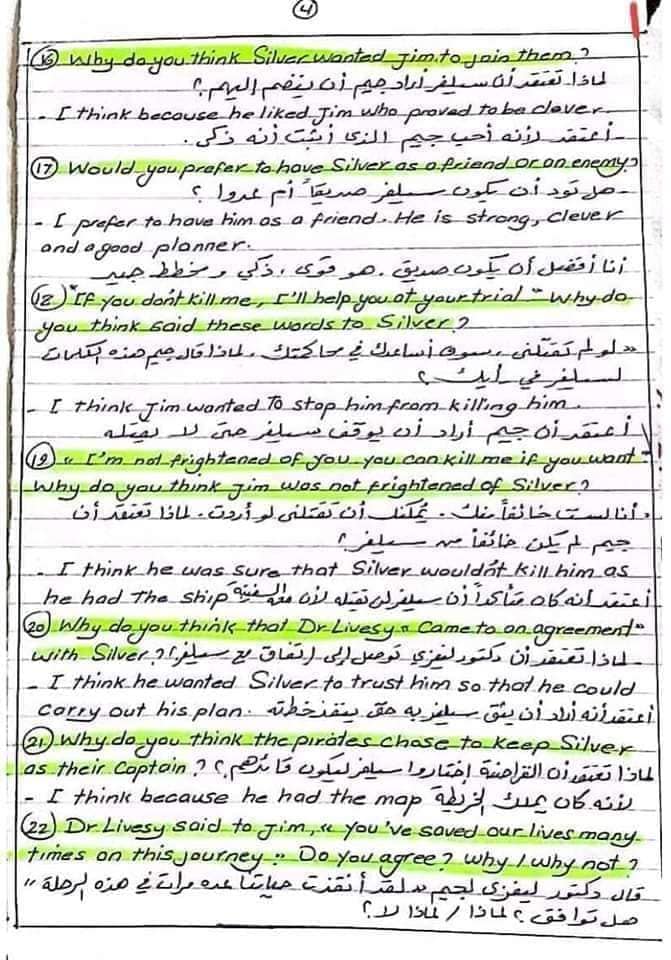 4
(16) Why do you think Silver wanted Jim to join them?
لماذا تعتقد أن سيلفر أراد جيم أن ينضم إليهم؟
- I think because he liked Jim who proved to be clever.
- أعتقد لأنه أحب جيم الذى أثبت أنه ذكى.
(17) Would you prefer to have Silver as a friend or an enemy?
- هل تود أن يكون سيلفر صديقاً أم عدوا ؟
- I prefer to have him as a friend. He is strong, clever
and a good planner.
أنا أفضل أن يكون صديق. هو قوى، ذكى و مخطط جيد
(18) "If you don't kill me, I'll help you at your trial" Why do
you think said these words to Silver?
« لو لم تقتلنى، سوف أساعدك في محاكمتك. لماذا قال جيم هذه الكلمات
لسيلفر في رأيك؟
- I think Jim wanted To stop him from killing him.
أعتقد أن جيم أراد أن يوقف سيلفر حتى لا يقتله
(19) « I'm not frightened of you. you can kill me if you want"
Why do you think Jim was not frightened of Silver?
- أنا لست خائفاً منك. يمكنك أن تقتلنى لو أردت. لماذا تعتقد أن
جيم لم يكن خائفاً من سيلفر؟
- I think he was sure that Silver wouldn't kill him as
he had the ship أعتقد أنه كان متأكداً أن سيلفر لن يقتله لأن معه السفينة
(20) Why do you think that Dr Livesy « Came to an agreement"
with Silver? لماذا تعتقد أن دكتور ليفزي توصل إلى إتفاق مع سيلفر؟
- I think he wanted Silver to trust him so that he could
carry out his plan. أعتقد أنه أراد أن يثق سيلفر به حتى ينفذ خطته
(21) Why do you think the pirates chose to keep Silver
as their Captain? لماذا تعتقد أن القراصنة إختاروا سيلفر ليكون قائدهم؟
- I think because he had the map لأنه كان يملك الخريطة
(22) Dr Livesy said to Jim, « you've saved our lives many
times on this journey" Do you agree? Why / why not?
قال دكتور ليفزى لجيم « لقد أنقذت حياتنا عده مرات في هذه الرحلة »
هل توافق؟ لماذا / لماذا لا؟